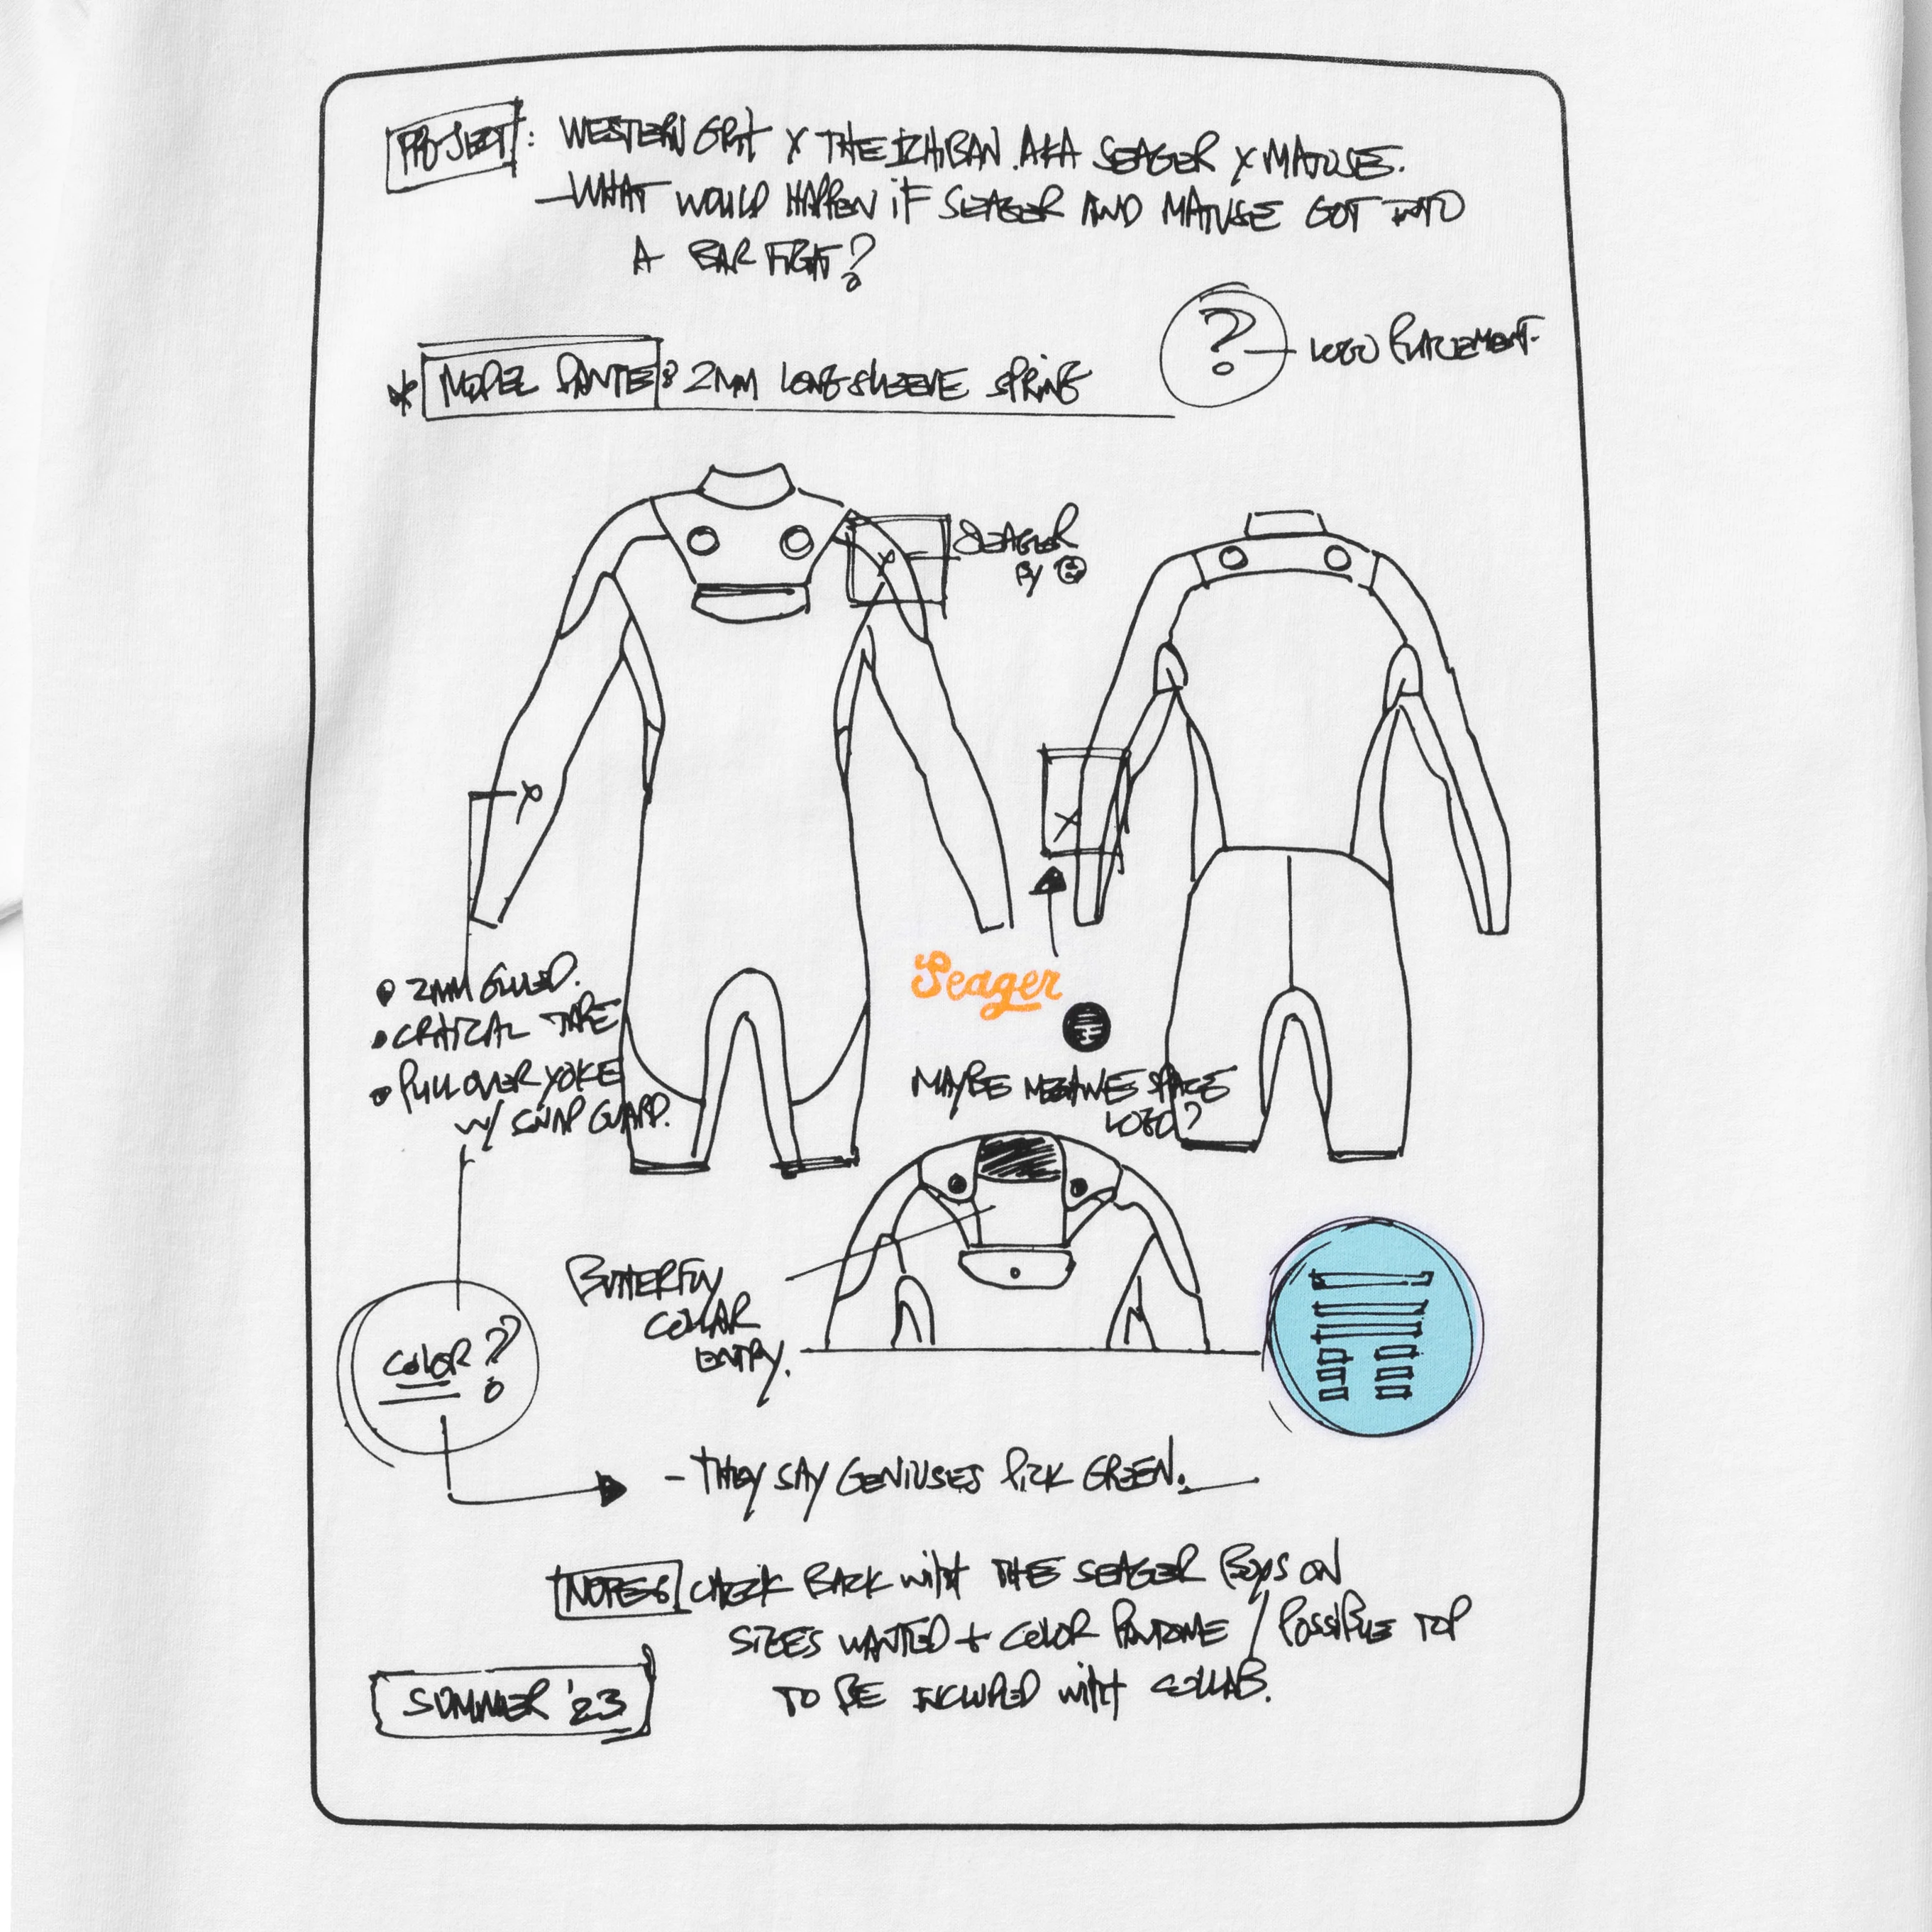 PROJECT: WESTERN GRIT X THE ICHIBAN. AKA SEAGER X MATUSE.
- WHAT WOULD HAPPEN IF SEAGER AND MATUSE GOT INTO
A BAR FIGHT?
? - LOGO PLACEMENT.
* MODEL DANTE: 2MM LONGSLEEVE SPRING
SEAGER
BY
X
X
X
• 2MM GLUED.
• CRITICAL TAPE
• PULLOVER YOKE
W/ SNAP GUARD.
Seager
MAYBE NEGATIVE SPACE
LOGO?
BUTTERFLY
COLLAR
ENTRY.
COLOR?
- THEY SAY GENIUSES PICK GREEN.
NOTES CHECK BACK WITH THE SEAGER BOYS ON
SIZES WANTED + COLOR PANTONE / POSSIBLE TOP
TO BE INCLUDED WITH COLLAB.
SUMMER '23